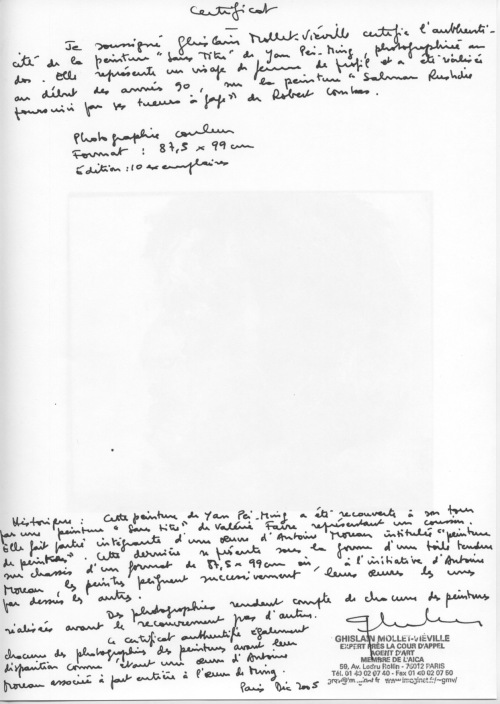 Certificat
Je soussigné Ghislain Mollet-Viéville certifie l'authenti-
cité de la peinture "Sans Titre" de Yan Pei-Ming, photographiée au
dos. Elle représente un visage de femme de profil et a été réalisée
au début des années 90, sur la peinture "Salman Rushdie
poursuivi par ses tueurs à gages" de Robert Combas.
Photographie couleur
Format : 87,5 x 99 cm
Édition : 10 exemplaires
Historique : Cette peinture de Yan Pei-Ming a été recouverte à son tour
par une peinture "Sans titre" de Valérie Favre représentant un coussin
Elle fait partie intégrante d'une œuvre d'Antoine Moreau intitulée "peinture
de peintres". Cette dernière se présente sous la forme d'une toile tendue
sur chassis d'un format de 87,5 x 99 cm où, à l'initiative d'Antoine
Moreau les peintres peignent successivement, leurs œuvres les unes
par dessus les autres.
Des photographies rendent compte de chacune des peintures
réalisées avant le recouvrement par d'autres.
Ce certificat authentifie également
chacune des photographies des peintures avant leur
disparition comme étant une œuvre d'Antoine
Moreau associée à part entière à l'œuvre de Ming.
Paris Déc 2005
GHISLAIN MOLLET-VIÉVILLE
EXPERT PRÈS LA COUR D'APPEL
AGENT D'ART
MEMBRE DE L'AICA
59, Av. Ledru Rollin - 75012 PARIS
Tél. 01 43 02 07 40 - Fax 01 40 02 07 50